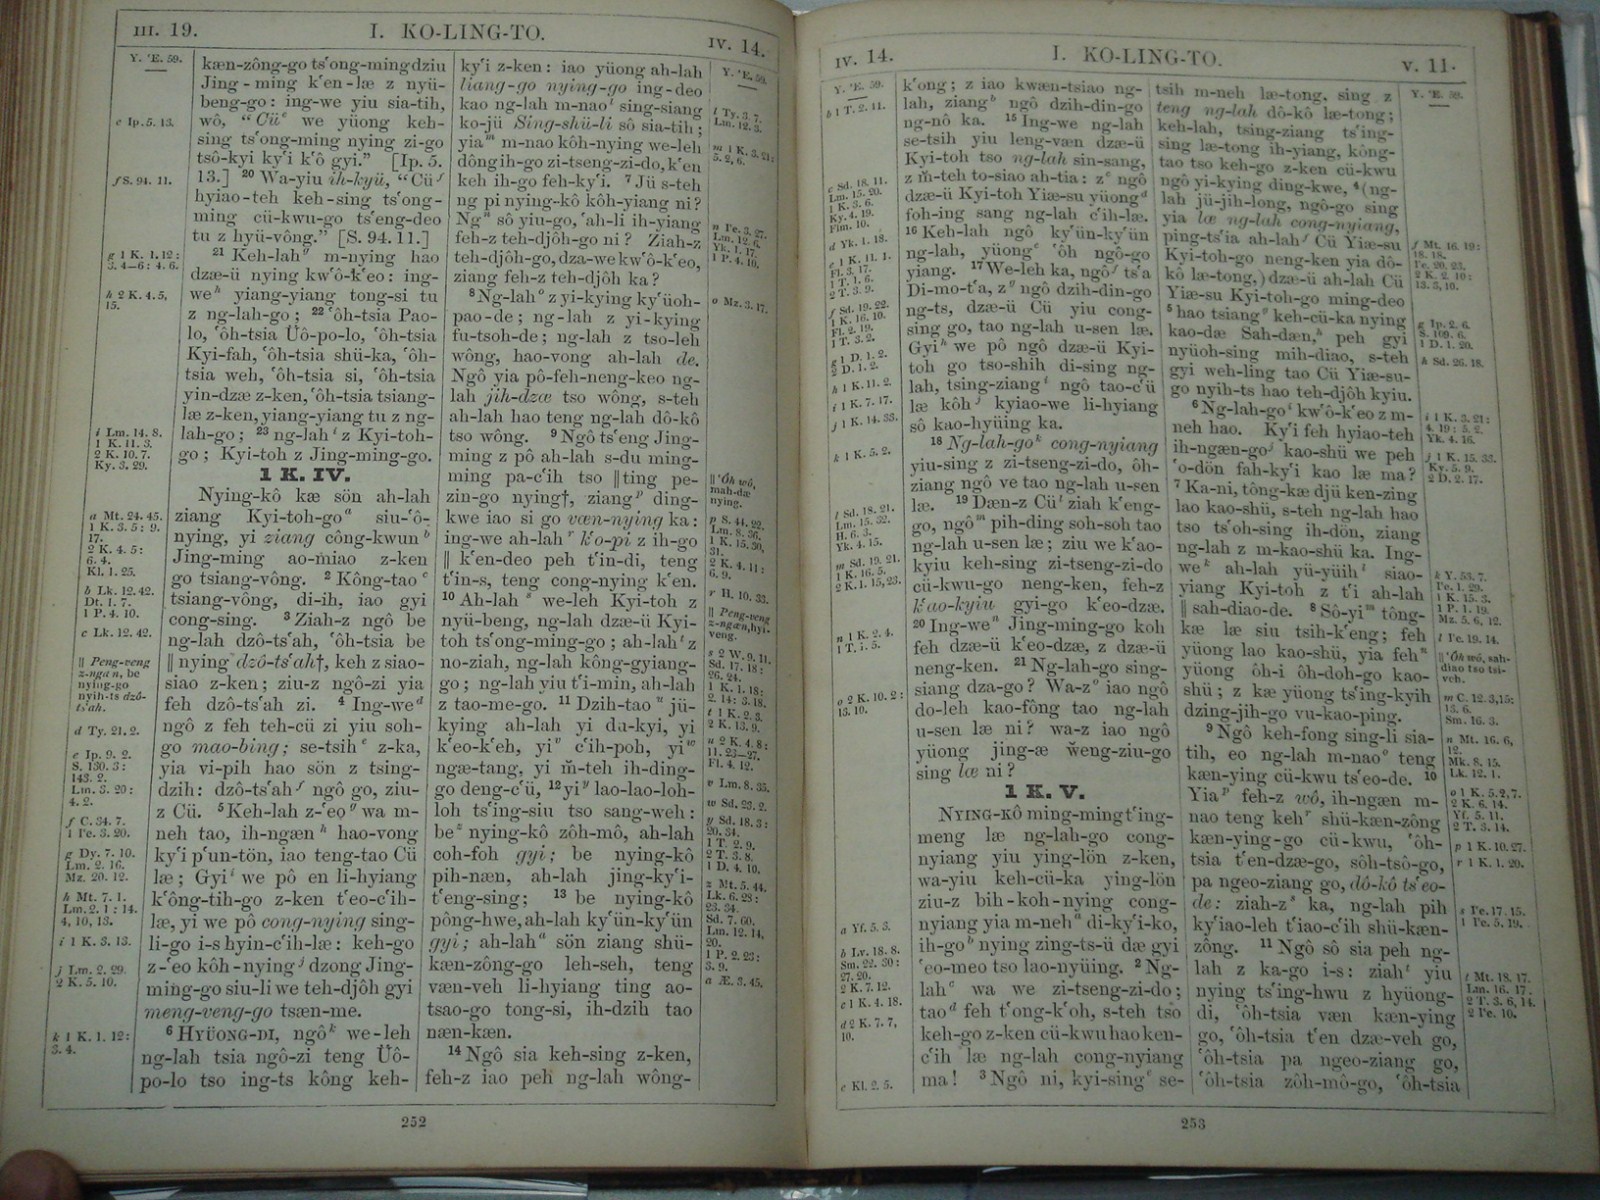 III. 19.
I. KO-LING-TO.
IV. 14.
Y. 'E. 59.
e Ip. 5. 13.
f S. 94. 11.
g 1 K. 1. 12:
3. 4—6: 4. 6.
h 2 K. 4. 5,
15.
i Lm. 14. 8.
1 K. 11. 3.
2 K. 10. 7.
Ky. 3. 29.
a Mt. 24. 45.
1 K. 3. 5: 9.
17.
2 K. 4. 5:
6. 4.
Kl. 1. 25.
b Lk. 12. 42.
Dt. 1. 7.
1 P. 4. 10.
c Lk. 12. 42.
|| Peng-veng
z-ngæn, be
nying-go
nyih-ts dzô-
ts'ah.
d Ty. 21. 2.
e Ip. 9. 2.
S. 130. 3:
143. 2.
Lm. 3. 20:
4. 2.
f C. 34. 7.
1 Pe. 3. 20.
g Dy. 7. 10.
Lm. 2. 16.
Mz. 20. 12.
h Mt. 7. 1.
Lm. 2. 1: 14.
4, 10, 13.
i 1 K. 3. 13.
j Lm. 2. 29.
2 K. 5. 10.
k 1 K. 1. 12:
3. 4.
kæn-zông-go ts'ong-ming dziu
Jing-ming k'en-læ z nyü-
beng-go: ing-we yiu sia-tih,
wô, “Cü e we yüong keh-
sing ts'ong-ming nying zi-go
tsô-kyi ky'i k'ô gyi.” [Ip. 5.
13.] 20 Wa-yiu ih-kyü, “Cü f
hyiao-teh keh-sing ts'ong-
ming cü-kwu-go ts'eng-deo
tu z hyü-vông.” [S. 94. 11.]
21 Keh-lah g m-nying hao
dzæ-ü nying kw'ô-k'eo: ing-
we h yiang-yiang tong-si tu
z ng-lah-go; 22 'ôh-tsia Pao-
lo, 'ôh-tsia Üô-po-lo, 'ôh-tsia
Kyi-fah, 'ôh-tsia shü-ka, 'ôh-
tsia weh, 'ôh-tsia si, 'ôh-tsia
yin-dzæ z-ken, 'ôh-tsia tsiang-
læ z-ken, yiang-yiang tu z ng-
lah-go; 23 ng-lah i z Kyi-toh-
go; Kyi-toh z Jing-ming-go.
1 K. IV.
Nying-kô kæ sön ah-lah
ziang Kyi-toh-go a siu-'ô-
nying, yi ziang công-kwun b
Jing-ming ao-miao z-ken
go tsiang-vông. 2 Kông-tao c
tsiang-vông, di-ih, iao gyi
cong-sing. 3 Ziah-z ngô be
ng-lah dzô-ts'ah, 'ôh-tsia be
|| nying dzô-ts'ah†, keh z siao-
siao z-ken; ziu-z ngô-zi yia
feh dzô-ts'ah zi. 4 Ing-we d
ngô z feh teh-cü zi yiu soh-
go mao-bing; se-tsih e z-ka,
yia vi-pih hao sön z tsing-
dzih: dzô-ts'ah f ngô go, ziu-
z Cü. 5 Keh-lah z-'eo g wa m-
neh tao, ih-ngæn h hao-vong
ky'i p'un-tön, iao teng-tao Cü
læ; Gyi i we pô en li-hyiang
k'ông-tih-go z-ken t'eo-c'ih-
læ, yi we pô cong-nying sing-
li-go i-s hyin-c'ih-læ: keh-go
z-'eo kôh-nying j dzong Jing-
ming-go siu-li we teh-djôh gyi
meng-veng-go tsæn-me.
6 Hyüong-di, ngô k we-leh
ng-lah tsia ngô-zi teng Üô-
po-lo tso ing-ts kông keh-
ky'i z-ken: iao yüong ah-lah
liang-go nying-go ing-deo
kao ng-lah m-nao l sing-siang
ko-jü Sing-shü-li sô sia-tih;
yia m m-nao kôh-nying we-leh
dông ih-go zi-tseng-zi-do, k'en
keh ih-go feh-ky'i. 7 Jü s-teh
ng pi nying-kô kôh-yiang ni?
Ng n sô yiu-go, 'ah-li ih-yiang
feh-z teh-djôh-go ni? Ziah-z
teh-djôh-go, dza-we kw'ô-k'eo,
ziang feh-z teh-djôh ka?
8 Ng-lah o z yi-kying ky'üoh-
pao-de; ng-lah z yi-kying
fu-tsoh-de; ng-lah z tso-leh
wông, hao-vong ah-lah de.
Ngô yia pô-feh-neng-keo ng-
lah jih-dzæ tso wông, s-teh
ah-lah hao teng ng-lah dô-kô
tso wông. 9 Ngô ts'eng Jing-
ming z pô ah-lah s-du ming-
ming pa-c'ih tso || ting pe-
zin-go nying†, ziang p ding-
kwe iao si go væn-nying ka:
ing-we ah-lah r k'o-pi z ih-go
|| k'en-deo peh t'in-di, teng
t'in-s, teng cong-nying k'en.
10 Ah-lah s we-leh Kyi-toh z
nyü-beng, ng-lah dzæ-ü Kyi-
toh ts'ong-ming-go; ah-lah t z
no-ziah, ng-lah kông-gyiang-
go; ng-lah yiu t'i-min, ah-lah
z tao-me-go. 11 Dzih-tao u jü-
kying ah-lah yi du-kyi, yi
k'eo-k'eh, yi v c'ih-poh, yi w
ngæ-tang, yi m-teh ih-ding-
go deng-c'ü, 12 yi y lao-lao-loh-
loh ts'ing-siu tso sang-weh:
be z nying-kô zôh-mô, ah-lah
coh-foh gyi; be nying-kô
pih-næn, ah-lah jing-ky'i-
t'eng-sing; 13 be nying-kô
pông-hwe, ah-lah ky'ün-ky'ün
gyi; ah-lah a sön ziang shü-
kæn-zông-go leh-seh, teng
væn-veh li-hyiang ting ao-
tsao-go tong-si, ih-dzih tao
næn-kæn.
14 Ngô sia keh-sing z-ken,
feh-z iao peh ng-lah wông-
Y. 'E. 59.
l Ty. 3. 7.
Lm. 12. 3.
m 1 K. 3. 21:
5. 2, 6.
n Pe. 3. 27.
Lm. 12. 6.
Yk. 1. 17.
1 P. 4. 10.
o Mz. 3. 17.
|| 'Ôh wô,
mah-dæ
nying.
p S. 44. 22.
Lm. 8. 36.
1 K. 15. 30,
31.
2 K. 4. 11:
6. 9.
r H. 10. 33.
|| Peng-veng
z-ngæn, hyi-
veng.
s 2 W. 9. 11.
Sd. 17. 18:
26. 24.
1 K. 1. 18:
2. 14: 3. 18.
t 1 K. 2. 3.
2 K. 13. 9.
u 2 K. 4. 8:
11. 23—27.
Fl. 4. 12.
v Lm. 8. 35.
w Sd. 23. 2.
y Sd. 18. 3:
20. 34.
1 T. 2. 9.
2 T. 3. 8.
1 D. 4. 10.
z Mt. 5. 44.
Lk. 6. 28:
23. 34.
Sd. 7. 60.
Lm. 12. 14,
20.
1 P. 2. 23:
3. 9.
a Æ. 3. 45.
252
IV. 14.
I. KO-LING-TO.
V. 11.
Y. 'E. 59.
b 1 T. 2. 11.
c Sd. 18. 11.
Lm. 15. 20.
1 K. 3. 6.
Ky. 4. 19.
Fim. 10.
d Yk. 1. 18.
e 1 K. 11. 1.
Fl. 3. 17.
1 T. 1. 6.
2 T. 3. 9.
f Sd. 19. 22.
1 K. 16. 10.
Fl. 2. 19.
1 T. 3. 2.
g 1 D. 1. 2.
2 D. 1. 2.
h 1 K. 11. 2.
i 1 K. 7. 17.
j 1 K. 14. 33.
k 1 K. 5. 2.
l Sd. 18. 21.
Lm. 15. 32.
H. 6. 3.
Yk. 4. 15.
m Sd. 19. 21.
1 K. 16. 5.
2 K. 1. 15, 23.
n 1 K. 2. 4.
1 T. 1. 5.
o 2 K. 10. 2:
13. 10.
a Yf. 5. 3.
b Lv. 18. 8.
Sm. 22. 30:
27. 20.
2 K. 7. 12.
c 1 K. 4. 18.
d 2 K. 7. 7,
10.
e Kl. 2. 5.
k'ong; z iao kwæn-tsiao ng-
lah, ziang b ngô dzih-din-go
ng-nô ka. 15 Ing-we ng-lah
se-tsih yiu leng-væn dzæ-ü
Kyi-toh tso ng-lah sin-sang,
z m-teh to-siao ah-tia: z c ngô
dzæ-ü Kyi-toh Yiæ-su yüong d
foh-ing sang ng-lah c'ih-læ.
16 Keh-lah ngô ky'ün-ky'ün
ng-lah, yüong e 'ôh ngô-go
yiang. 17 We-leh ka, ngô f ts'a
Di-mo-t'a, z g ngô dzih-din-go
ng-ts, dzæ-ü Cü yiu cong-
sing go, tao ng-lah u-sen læ.
Gyi h we pô ngô dzæ-ü Kyi-
toh go tso-shih di-sing ng-
lah, tsing-ziang i ngô tao-c'ü
læ kôh j kyiao-we li-hyiang
sô kao-hyüing ka.
18 Ng-lah-go k cong-nyiang
yiu-sing z zi-tseng-zi-do, ôh-
ziang ngô ve tao ng-lah u-sen
læ. 19 Dæn-z Cü l ziah k'eng-
go, ngô m pih-ding soh-soh tao
ng-lah u-sen læ; ziu we k'ao-
kyiu keh-sing zi-tseng-zi-do
cü-kwu-go neng-ken, feh-z
k'ao-kyiu gyi-go k'eo-dzæ.
20 Ing-we n Jing-ming-go koh
feh dzæ-ü k'eo-dzæ, z dzæ-ü
neng-ken. 21 Ng-lah-go sing-
siang dza-go? Wa-z o iao ngô
do-leh kao-fông tao ng-lah
u-sen læ ni? wa-z iao ngô
yüong jing-æ weng-ziu-go
sing læ ni?
1 K. V.
Nying-kô ming-ming t'ing-
meng læ ng-lah-go cong-
nyiang yiu ying-lön z-ken,
wa-yiu keh-cü-ka ying-lön
ziu-z bih-koh-nying cong-
nyiang yia m-neh a di-ky'i-ko,
ih-go b nying zing-ts-ü dæ gyi
'eo-meo tso lao-nyüing. 2 Ng-
lah c wa we zi-tseng-zi-do;
tao d feh t'ong-k'oh, s-teh tso
keh-go z-ken cü-kwu hao ken-
c'ih læ ng-lah cong-nyiang
ma! 3 Ngô ni, kyi-sing e se-
tsih m-neh læ-tong, sing z
teng ng-lah dô-kô læ-tong;
keh-lah, tsing-ziang ts'ing-
sing læ-tong ih-yiang, kông-
tao tso keh-go z-ken cü-kwu
ngô yi-kying ding-kwe, 4 (ng-
lah jü-jih-long, ngô-go sing
yia læ ng-lah cong-nyiang,
ping-ts'ia ah-lah f Cü Yiæ-su
Kyi-toh-go neng-ken yia dô-
kô læ-tong,) dzæ-ü ah-lah Cü
Yiæ-su Kyi-toh-go ming-deo
5 hao tsiang g keh-cü-ka nying
kao-dæ Sah-dæn, h peh gyi
nyüoh-sing mih-diao, s-teh
gyi weh-ling tao Cü Yiæ-su-
go nyih-ts hao teh-djôh kyiu.
6 Ng-lah-go i kw'ô-k'eo z m-
neh hao. Ky'i feh hyiao-teh
ih-ngæn-go j kao-shü we peh
'o-dön fah-ky'i kao læ ma?
7 Ka-ni, tông-kæ djü ken-zing
lao kao-shü, s-teh ng-lah hao
tso ts'oh-sing ih-dön, ziang
ng-lah z m-kao-shü ka. Ing-
we k ah-lah yü-yüih l siao-
yiang Kyi-toh z t'i ah-lah
|| sah-diao-de. 8 Sô-yi m tông-
kæ læ siu tsih-k'eng; feh
yüong lao kao-shü, yia feh n
yüong ôh-i ôh-doh-go kao-
shü; z kæ yüong ts'ing-kyih
dzing-jih-go vu-kao-ping.
9 Ngô keh-fong sing-li sia-
tih, eo ng-lah m-nao o teng
kæn-ying cü-kwu ts'eo-de. 10
Yia p feh-z wô, ih-ngæn m-
nao teng keh r shü-kæn-zông
kæn-ying-go cü-kwu, 'ôh-
tsia t'en-dzæ-go, sôh-tsô-go,
pa ngeo-ziang go, dô-kô ts'eo-
de: ziah-z s ka, ng-lah pih
ky'iao-leh t'iao-c'ih shü-kæn-
zông. 11 Ngô sô sia peh ng-
lah z ka-go i-s: ziah t yiu
nying ts'ing-hwu z hyüong-
di, 'ôh-tsia væn kæn-ying
go, 'ôh-tsia t'en dzæ-veh go,
'ôh-tsia pa ngeo-ziang go,
'ôh-tsia zôh-mô-go, 'ôh-tsia
Y. 'E. 59.
f Mt. 16. 19:
18. 18.
Pe. 20. 23.
2 K. 2. 10:
13. 3, 10.
g Ip. 2. 6.
S. 109. 6.
1 D. 1. 20.
h Sd. 26. 18.
i 1 K. 3. 21:
4. 19: 5. 2.
Yk. 4. 16.
j 1 K. 15. 33.
Ky. 5. 9.
2 D. 2. 17.
k Y. 53. 7.
Pe. 1. 29.
1 K. 15. 3.
1 P. 1. 19.
Mz. 5. 6, 12.
l Pe. 19. 14.
|| 'Ôh wô, sah-
diao tso tsi-
veh.
m C. 12. 3, 15:
13. 6.
Sm. 16. 3.
n Mt. 16. 6,
12.
Mk. 8. 15.
Lk. 12. 1.
o 1 K. 5. 2, 7.
2 K. 6. 14.
Yf. 5. 11.
2 T. 3. 14.
p 1 K. 10. 27.
r 1 K. 1. 20.
s Pe. 17. 15.
1 Pe. 5. 19.
t Mt. 18. 17.
Lm. 16. 17.
2 T. 3. 6, 14.
2 Pe. 10.
253